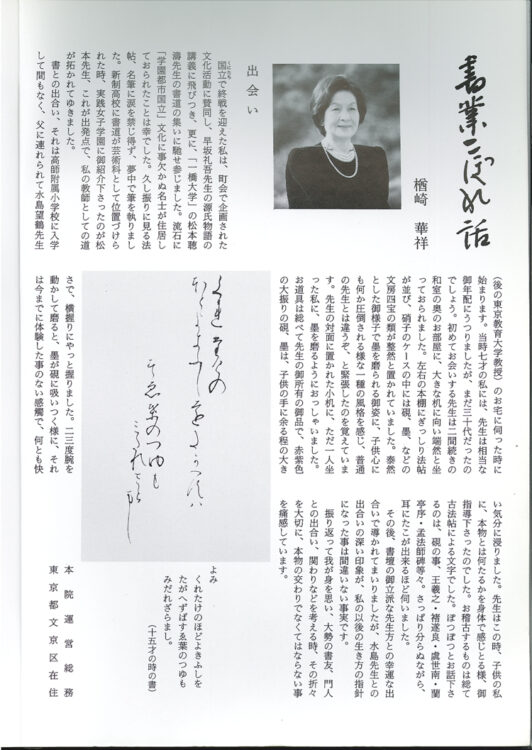 書業こぼれ話
楢崎 華祥
出会い
国立で終戦を迎えた私は、町会で企画された
文化活動に賛同し、早坂礼吾先生の源氏物語の
講義に飛びつき、更に、「一橋大学」の松本聴
濤先生の書道の集いに馳せ参じました。流石に
「学園都市国立」文化に事欠かぬ名士が住居し
ておられたことは幸でした。久し振りに見る法
帖、名筆に涙を禁じ得ず、夢中で筆を執りまし
た。新制高校に書道が芸術科として位置づけら
れた時、実践女子学園に御紹介下さったのが松
本先生、これが出発点で、私の教師としての道
が拓かれてゆきました。
書との出合い、それは高師附属小学校に入学
して間もなく、父に連れられて水島望鶴先生
(後の東京教育大学教授)のお宅に伺った時に
始まります。当時七才の私には、先生は相当な
御年配にうつりましたが、まだ三十代だったの
でしょう。初めてお会いする先生は二間続きの
和室の奥のお部屋に、大きな机に向い端然と坐
っておられました。左右の本棚にぎっしり法帖
が並び、硝子のケースの中には硯、墨、などの
文房四宝の類が整然と置かれていました。泰然
とした御様子で墨を磨られる御姿に、子供心に
も何か圧倒される様な一種の風格を感じ、普通
の先生とは違うぞ、と緊張したのを覚えていま
す。先生の対面に置かれた小机に、ただ一人坐
った私に、墨を磨るようにおっしゃいました。
お道具は総べて先生の御所有の御品で、赤紫色
の大振りの硯、墨は、子供の手に余る程の大き
さで、横握りにやっと握りました。二三度腕を
動かして磨ると、墨が硯に吸いつく様に、それ
は今までに体験した事のない感觸で、何とも快
い気分に浸りました。先生はこの時、子供の私
に、本物とは何たるかを身体で感じとる様、御
指導下さったのでした。お稽古するものは総て
古法帖による文字でした。ぽつぽつとお話下さ
るのは、硯の事、王羲之・褚遂良・虞世南・蘭
亭序・孟法師碑等々。さっぱり分らぬながら、
耳にたこが出来るほど伺いました。
その後、書壇の御立派な先生方との幸運な出
合いで導かれてまいりましたが、水島先生との
出合いの深い印象が、私の以後の生き方の指針
になった事は間違いない事実です。
振り返って我が身を思い、大勢の書友、門人
との出合い、関わりなどを考える時、その折々
を大切に、本物の交わりでなくてはならない事
を痛感しています。
よみ
くれたけのほどよきふしを
たがへずばすゑ葉のつゆも
みだれざらまし。
(十五才の時の書)
本院運営総務
東京都文京区在住